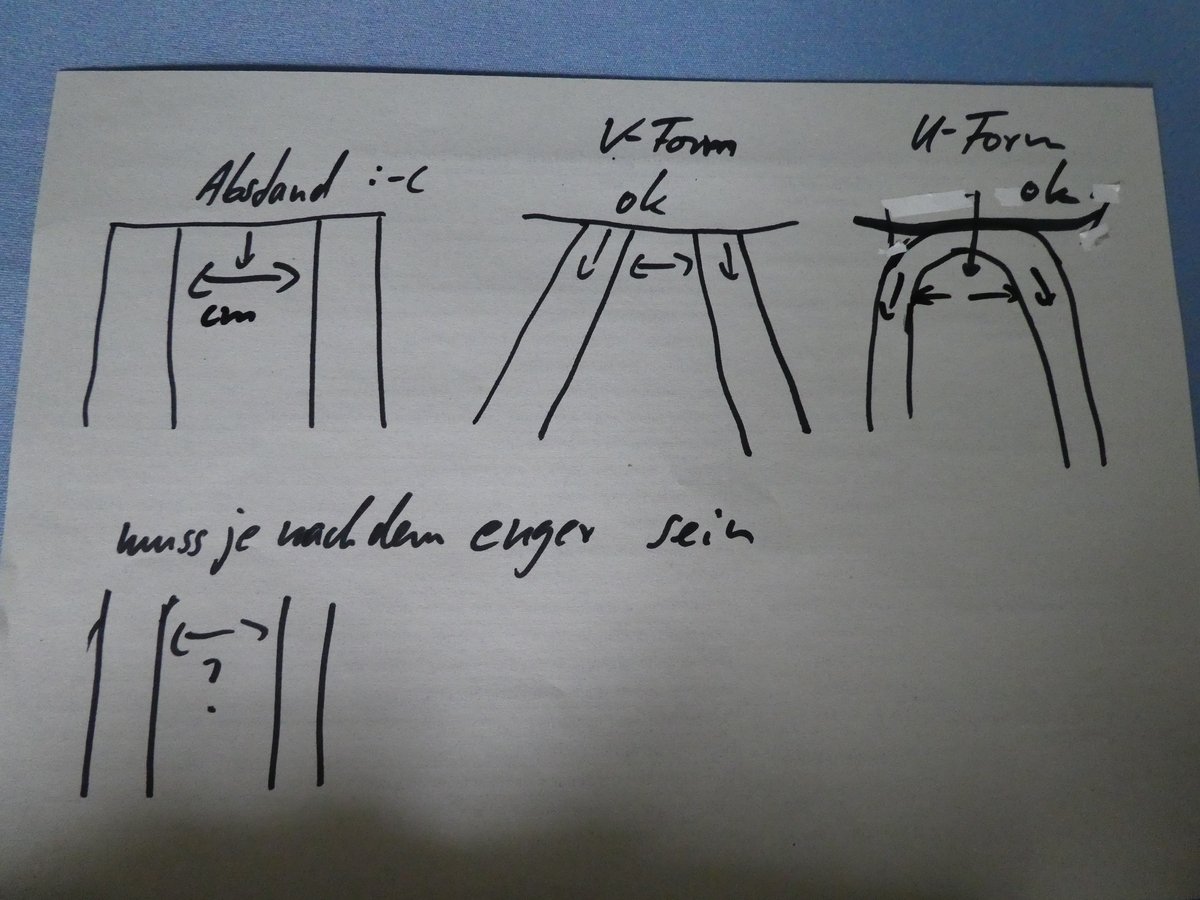 V-Form
U-Form
Abstand :-(
ok
ok.
cm
muss je nach dem enger sein
?